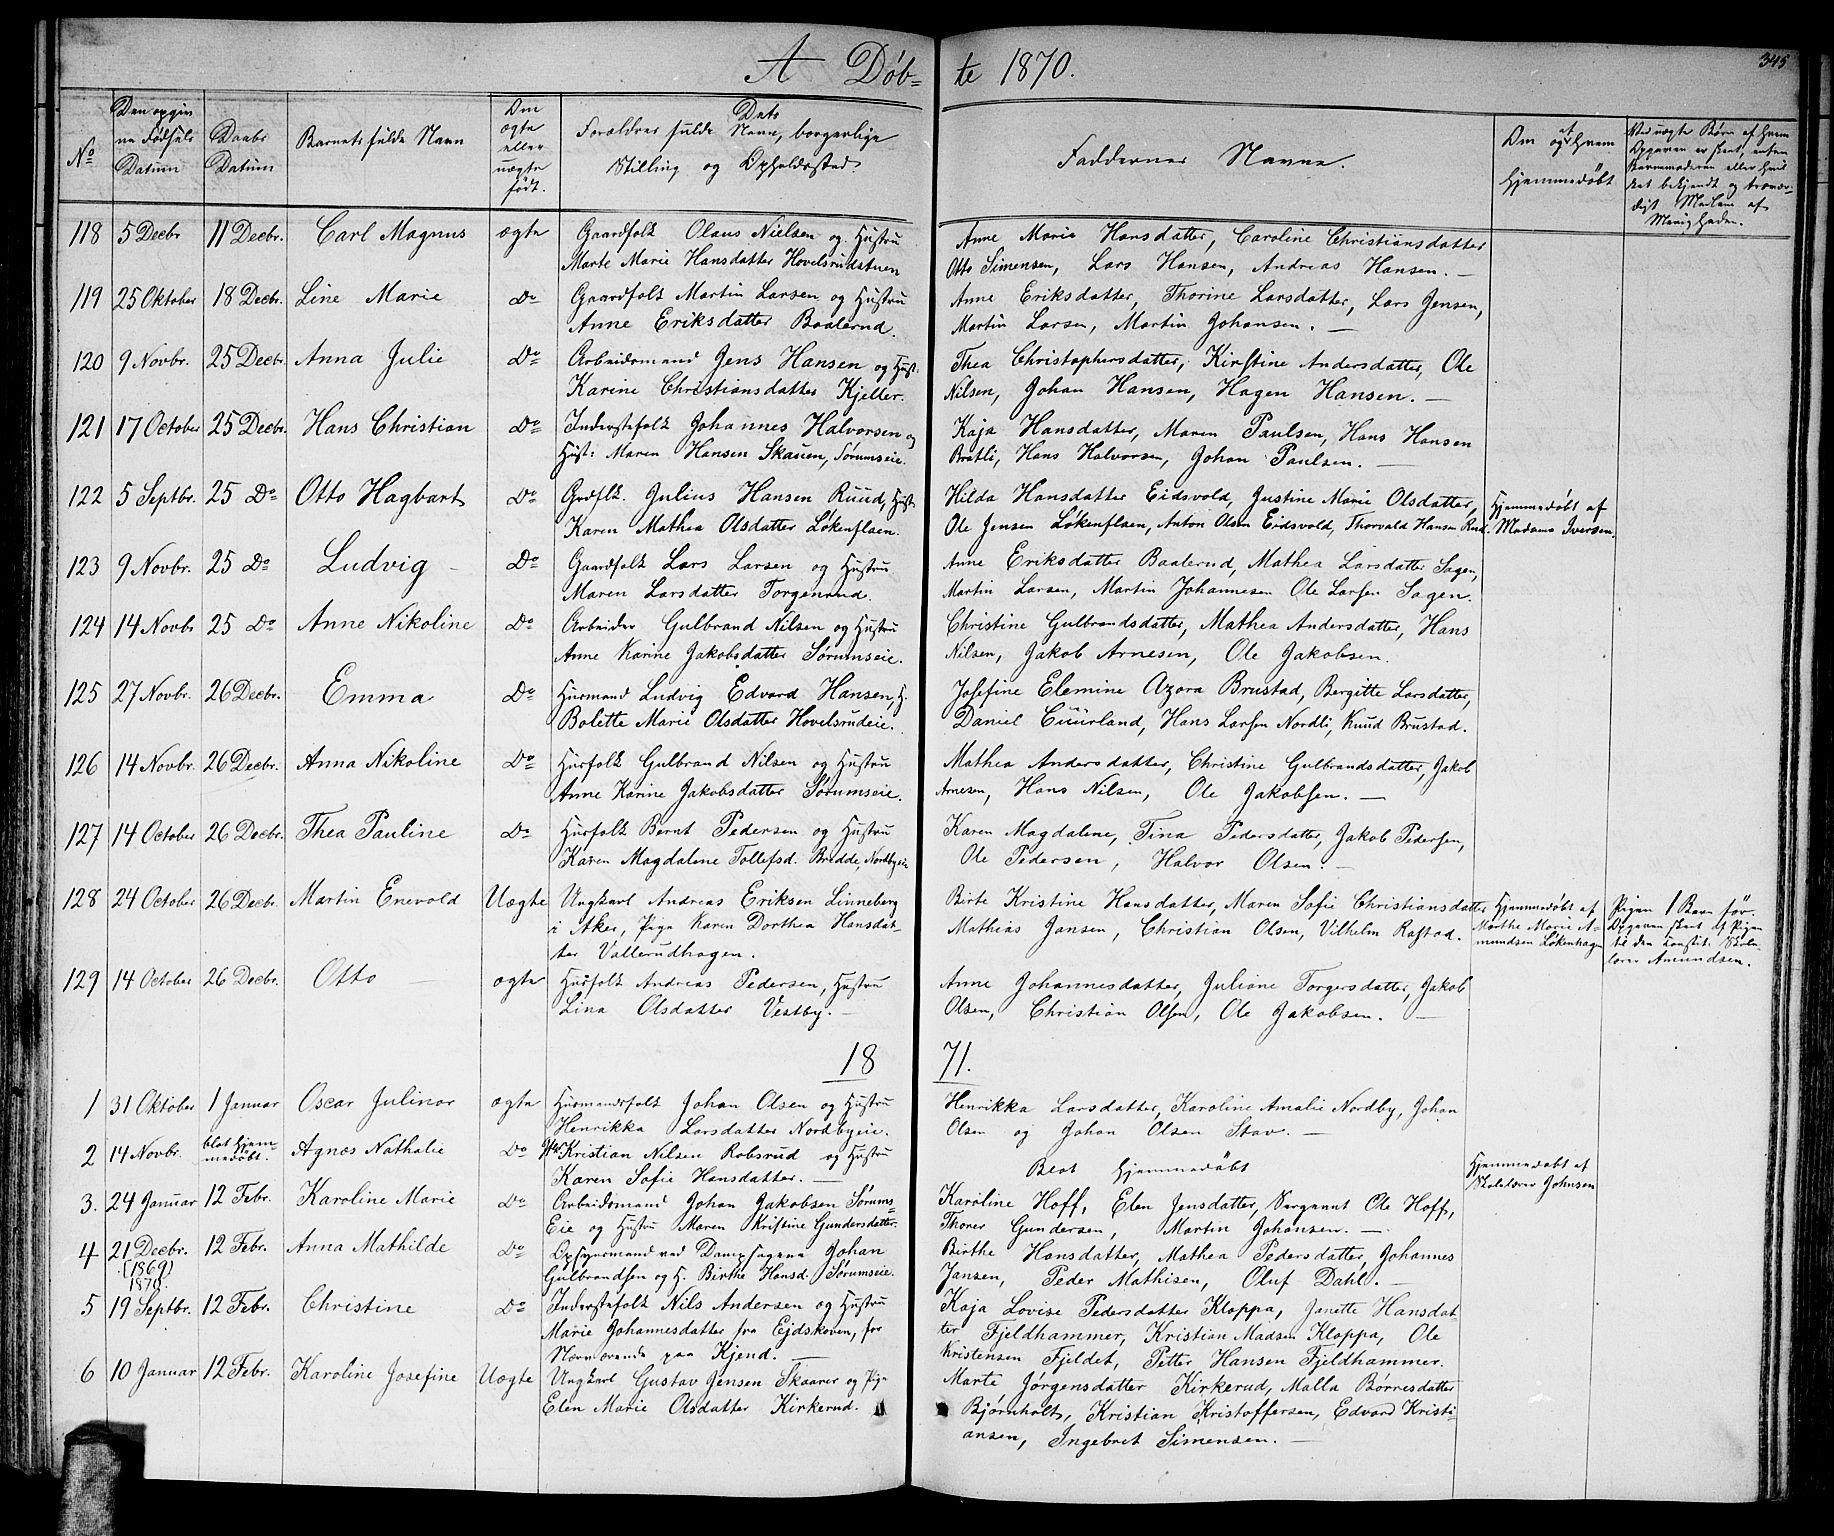 A Døb-
te 1870.
345
No
Den opgivne Fødsels Datum
Daabs Datum
Barnets fulde Navn
Om ægte eller uægte født.
Forældres fulde Navne, borgerlige Stilling og Opholdssted.
Dato
Faddernes Navne.
Om og af Hvem hjemmedøbt
Ved uægte Børn af hvem Opgaven er skeet, enten Barnmoderen eller hvilket bekjendt og troværdigt Medlem af Menigheden.
118 5 Decbr 11 Decbr. Carl Magnus ægte Gaardfolk Olaus Nielsen og Hustru Anne Marie Hansdatter, Caroline Christiansdatter
Marte Marie Hansdatter Hovelsrudstuen Otto Simensen, Lars Hansen, Andreas Hansen. —
119 25 Oktober 18 Decbr. Line Marie Do Gaardfolk Martin Larsen og Hustru Anne Eriksdatter, Thorine Larsdatter, Lars Jensen,
Anne Eriksdatter Baalerud. Martin Larsen, Martin Johansen. —
120 9 Novbr. 25 Decbr. Anna Julie Do Arbeidsmand Jens Hansen og Hust. Thea Christophersdatter, Kirstine Andersdatter, Ole
Karine Christiansdatter Kjeller. Nilsen, Johan Hansen, Hagen Hansen. —
121 17 October 25 Decbr. Hans Christian Do Inderstefolk Johannes Halvorsen og Kaja Hansdatter, Maren Paulsen, Hans Hansen
Hust: Maren Hansen Skauen, Sørumseie. Bratli, Hans Halvorsen, Johan Paulsen. —
122 5 Septbr. 25 Do Otto Hagbart Do Grdflk. Julius Hansen Ruud, Hust. Hilda Hansdatter Eidsvold, Justine Marie Olsdatter, Hjemmedøbt af
Karen Mathea Olsdatter Løkenflaen. Ole Jensen Løkenflaen, Anton Olsen Eidsvold, Thorvald Hansen Rud. Madame Iversen.
123 9 Novbr. 25 Do Ludvig — Do Gaardfolk Lars Larsen og Hustru Anne Eriksdatter Baalerud, Mathea Larsdatter Sagen,
Maren Larsdatter Torgenrud. Martin Larsen, Martin Johannesen Ole Larsen Sagen.
124 14 Novbr 25 Do Anne Nikoline Do Arbeider Gulbrand Nilsen og Hustru Christine Gulbrandsdatter, Mathea Andersdatter, Hans
Anne Karine Jakobsdatter Sørumseie. Nilsen, Jakob Arnesen, Ole Jakobsen.
125 27 Novbr. 26 Decbr. Emma Do Husmand Ludvig Edvard Hansen, H. Josefine Elemine Azora Brustad, Bergitte Larsdatter,
Bolette Marie Olsdatter Hovelsrudeie. Daniel Cuurland, Hans Larsen Nordli, Knud Brustad.
126 14 Novbr. 26 Decbr. Anna Nikoline Do Husfolk Gulbrand Nilsen og Hustru Mathea Andersdatter, Christine Gulbrandsdatter, Jakob
Anne Karine Jakobsdatter Sørumseie. Arnesen, Hans Nilsen, Ole Jakobsen. —
127 14 October 26 Decbr. Thea Pauline Do Husfolk Bernt Pedersen og Hustru Karen Magdalene, Tina Pedersdatter, Jakob Pedersen,
Karen Magdalene Tollefsd. Brødde, Nordbyeie Ole Pedersen, Halvor Olsen. —
128 24 October 26 Decbr. Martin Enevold Uægte Ungkarl Andreas Eriksen Linneberg Birte Kristine Hansdatter, Maren Sofie Christiansdatter Hjemmedøbt af Pigen 1 Barn før.
i Aker, Pige Karen Dorthea Hansdat- Mathias Jansen, Christian Olsen, Vilhelm Rastad. Marthe Marie A- Opgaven skeet af Pigen
ter Vallerudhagen. mundsen Løkenhagen til den konstit. Skole-
lærer Amundsen.
129 14 October 26 Decbr. Otto — ægte Husfolk Andreas Pedersen, Hustru Anne Johannesdatter, Juliane Torgersdatter, Jakob
Lina Olsdatter Vestby. — Olsen, Christian Olsen, Ole Jakobsen. —
18 71.
1 31 Oktober 1 Januar Oscar Julinor ægte Husmandsfolk Johan Olsen og Hustru Henrikka Larsdatter, Karoline Amalie Nordby, Johan
Henrikka Larsdatter Nordbyeie. Olsen og Johan Olsen Stav. —
2 14 Novbr. blot hjemmedøbt. Agnes Nathalie Do Kristian Nilsen Robsrud og Hustru Blot hjemmedøbt Hjemmedøbt af
Karen Sofie Hansdatter. — Skolelærer Johnsen
3. 24 Januar 12 Febr. Karoline Marie Do Arbeidsmand Johan Jakobsen Sørums- Karoline Hoff, Elen Jensdatter, Sergeant Ole Hoff,
Eie og Hustru Maren Kristine Gundersdatter. Thorer Gundersen, Martin Johansen. —
4 21 Decbr. (1869) 12 Febr. Anna Mathilde Do Opsynsmand ved Dampsagene Johan Birthe Hansdatter, Mathea Pedersdatter, Johannes
Gulbrandsen og H. Birthe Hansd. Sørumseie. Jansen, Peder Mathisen, Oluf Dahl. —
1870
5 19 Septbr. 12 Febr. Christine Do Inderstefolk Nils Andersen og Hustru Kaja Lovise Pedersdatter Kloppa, Janette Hansdat-
Marie Johannesdatter fra Ejdskoven, for ter Fjeldhammer, Kristian Madsen Kloppa, Ole
Nærværende paa Kjend. — Kristensen Fjeldet, Petter Hansen Fjeldhammer.
6 10 Januar 12 Febr. Karoline Josefine Uægte Ungkarl Gustav Jensen Skaarer og Pige Marte Jørgensdatter Kirkerud, Malla Børresdatter
Elen Marie Olsdatter Kirkerud. Bjørnholt, Kristian Kristoffersen, Edvard Kristi-
ansen, Ingebret Simensen. —